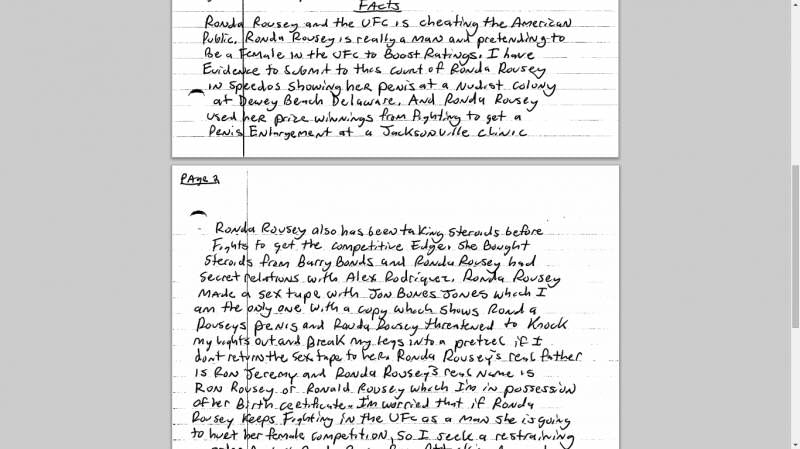 FActs
Ronda Rousey and the UFC is cheating the American
Public. Ronda Rousey is really a man and pretending to
Be a Female in the UFC to Boost Ratings. I have
Evidence to Submit to this court of Ronda Rousey
in Speedos showing her penis at a Nudist colony
at Dewey Beach Delaware. And Ronda Rousey
used her prize winnings from Fighting to get a
Penis Enlargement at a Jacksonville clinic
PAge 2
Ronda Rousey also has been taking steroids before
Fights to get the competitive Edge. She Bought
Steroids from Barry Bonds and Ronda Rousey had
Secret relations with Alex Rodriquez. Ronda Rousey
Made a sex tape with Jon Bones Jones which I
am the only one with a copy which shows Ronda
Rouseys penis and Ronda Rousey threatened to Knock
my lights out and Break my legs into a pretzel if I
dont return the sex tape to her. Ronda Rousey's real father
is Ron Jeremy and Ronda Rousey's real name is
Ron Rousey or Ronald Rousey which I'm in possession
of her Birth certificate. I'm worried that if Ronda
Rousey Keeps Fighting in the UFC as a man she is going
to hurt her female competition, so I seek a restraining